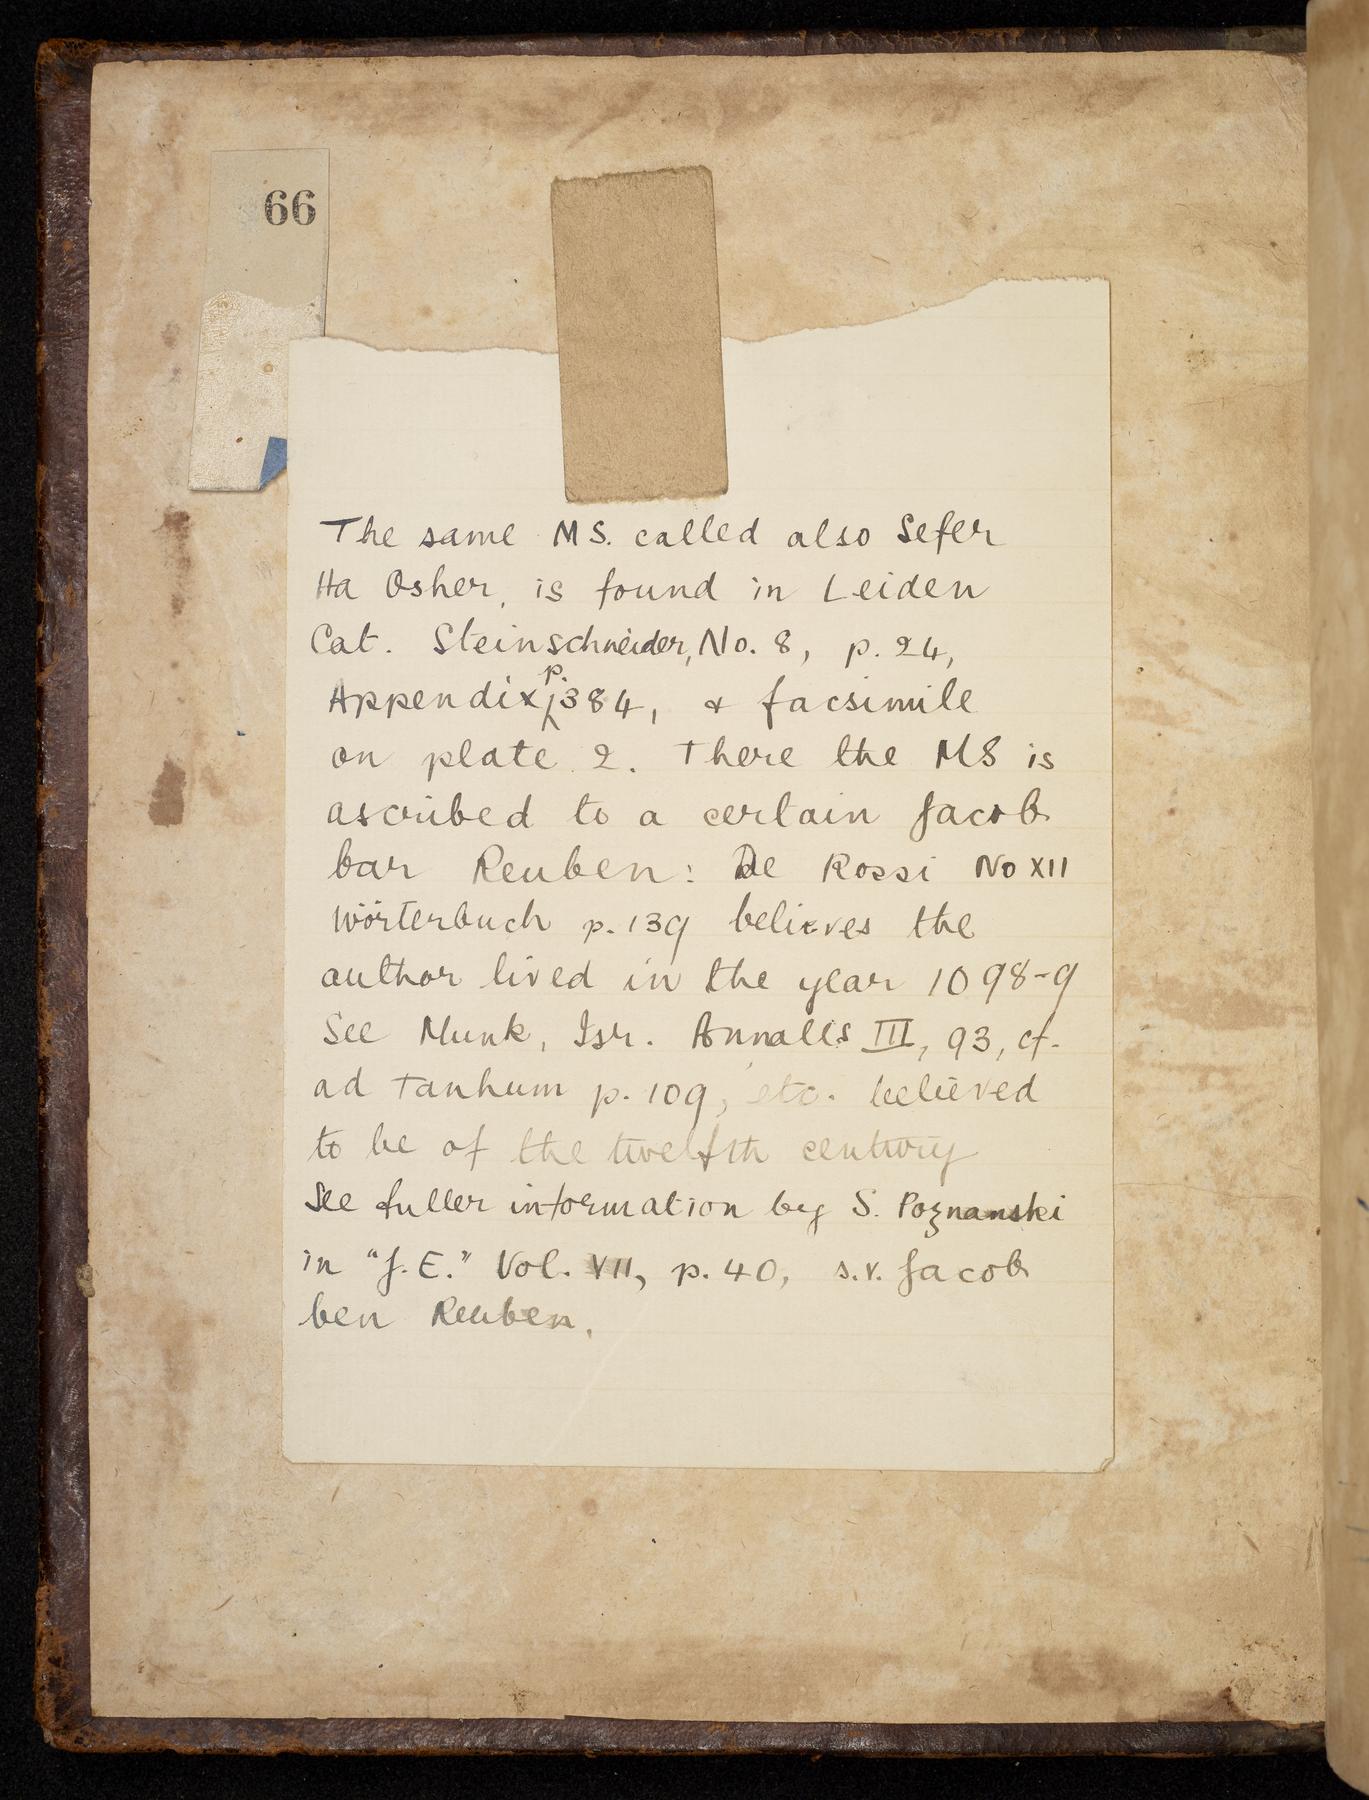 66
The same MS. called also Sefer
Ha Osher, is found in Leiden
Cat. Steinschneider, No. 8, p. 24,
Appendix, p. 384, & facsimile
on plate 2. There the MS is
ascribed to a certain Jacob
bar Reuben: De Rossi No XII
Wörterbuch p. 139 believes the
author lived in the year 1098-9
See Munk, Isr. Annalls III, 93, cf.
ad Tanhum p. 109, etc. believed
to be of the twelfth century
See fuller information by S. Poznanski
in "J.E." Vol. VII, p. 40, s.v. Jacob
ben Reuben.